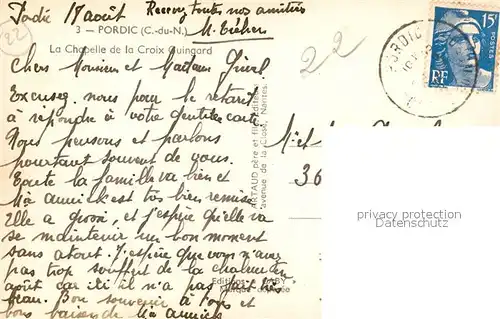 Pordic 17 août Recevez toutes nos amitiés
M. 
3 — PORDIC (C.-du-N.)
La Chapelle de la Croix Guingard
22
22
Chers Monsieur et Madame
Excusez nous pour le retard
à répondre à votre gentille carte
Nous pensons et parlons
pourtant souvent de vous.
Toute la famille va bien et
Mà Annick est très bien remise
Elle a grossi, et j'espère qu'elle va
se maintenir un bon moment
sans atout. J'espère que vous n'avez
pas trop souffert de la chaleur en
août car ici il n'a pas fait très
beau. Bon souvenir à tous et
bons baisers de Mà Annick
ARTAUD père et fils, éditeurs
avenue de la Close, Nantes.
Editions GABY
Marque déposée
PORDIC
15F
POSTES
RF
M. et
36
privacy protection
Datenschutz